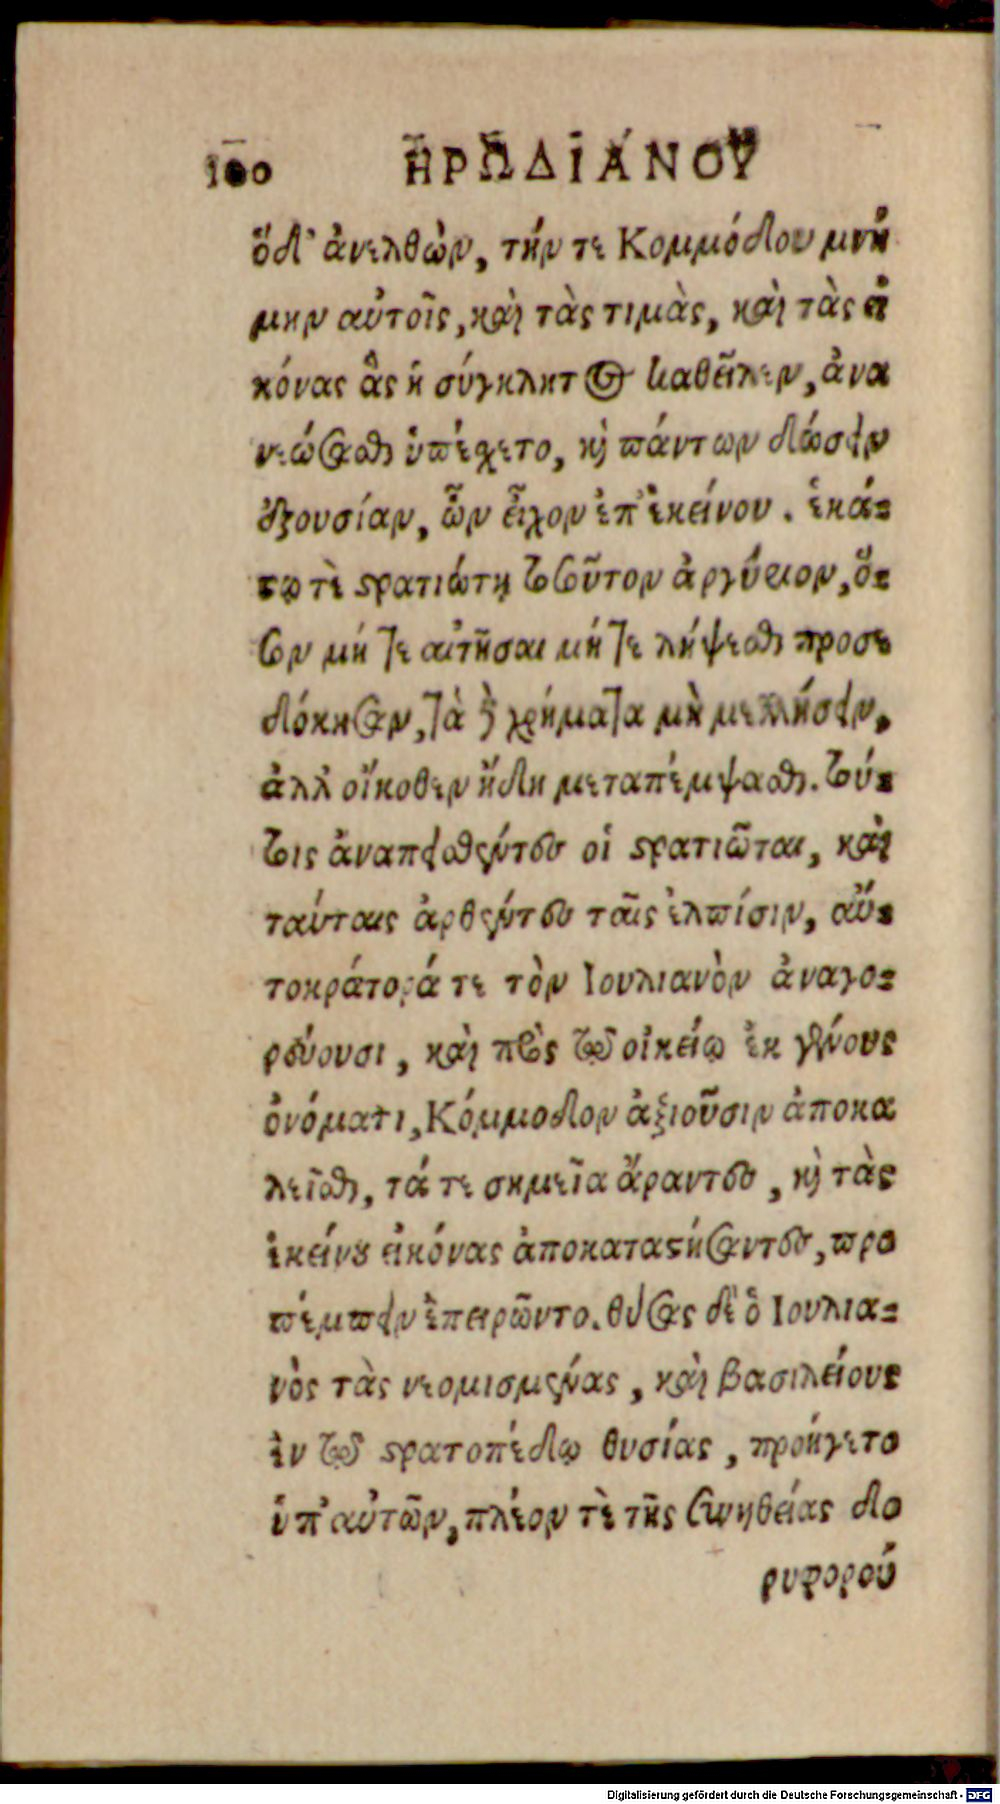 100 ἩΡΩΔΙΑΝΟΥ
ὅδ' ἀνελθὼν, τήν τε Κομμόδου μνή
μην αὐτοῖς, καὶ τὰς τιμὰς, καὶ τὰς εἰ
κόνας ἃς ἡ σύγκλητος καθεῖλεν, ἀνα
νεώσασθαι ὑπέσχετο, καὶ πάντων δώσειν
ἐξουσίαν, ὧν εἶχον ἐπ' ἐκείνου. ἑκά-
στῳ τὲ στρατιώτῃ τοσοῦτον ἀργύριον, ὅ-
σον μήτε αἰτῆσαι μήτε λήψεσθαι προσε
δόκησαν, τὰ δὲ χρήματα μὴ μελλήσειν,
ἀλλ' οἴκοθεν ἤδη μεταπέμψασθαι. τού-
τοις ἀναπεισθέντες οἱ στρατιῶται, καὶ
ταύταις ἀρθέντες ταῖς ἐλπίσιν, αὐ-
τοκράτορά τε τὸν Ιουλιανὸν ἀναγο-
ρεύουσι, καὶ πρὸς τῷ οἰκείῳ ἐκ γένους
ὀνόματι, Κόμμοδον ἀξιοῦσιν ἀποκα
λεῖσθαι, τά τε σημεῖα ἄραντες, καὶ τὰς
ἐκείνου εἰκόνας ἀποκαταστήσαντες, προ
πέμπειν ἐπειρῶντο. θύσας δὲ ὁ Ιουλια-
νὸς τὰς νεομισμένας, καὶ βασιλείους
ἐν τῷ στρατοπέδῳ θυσίας, προήγετο
ὑπ' αὐτῶν, πλέον τὲ τῆς συνηθείας δο
ρυφορού
Digitalisierung gefördert durch die Deutsche Forschungsgemeinschaft - DFG